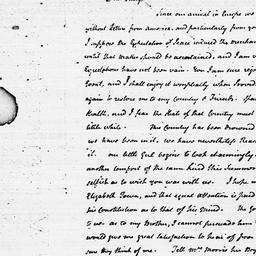 Since our arrival in Europe we
without Letters from america, and particularly from you
I suppose the Expectation of Peace induced the merchan
until that matter should be ascertained, and I am
Expectations have not been vain. You I am sure rejo
Event, and I shall enjoy it doubly when Provid
again to restore me to my Country & Friends.
Health, and I fear the State of that Country must
little while. The Country has been drowned
we have been in it. We have nevertheless
it. our little Girl begins to look charmingly
another compleat the tawn head this Summer
selfish as to wish you was with us. I hope
Elizabeth Town, and that equal attention is paid
his Constitution as to that of his Mind. The
to us as to my Brother, I cannot persuade him
would give me great satisfaction to hear of from
sure they think of me. Tell Mrs. Morris her Boys